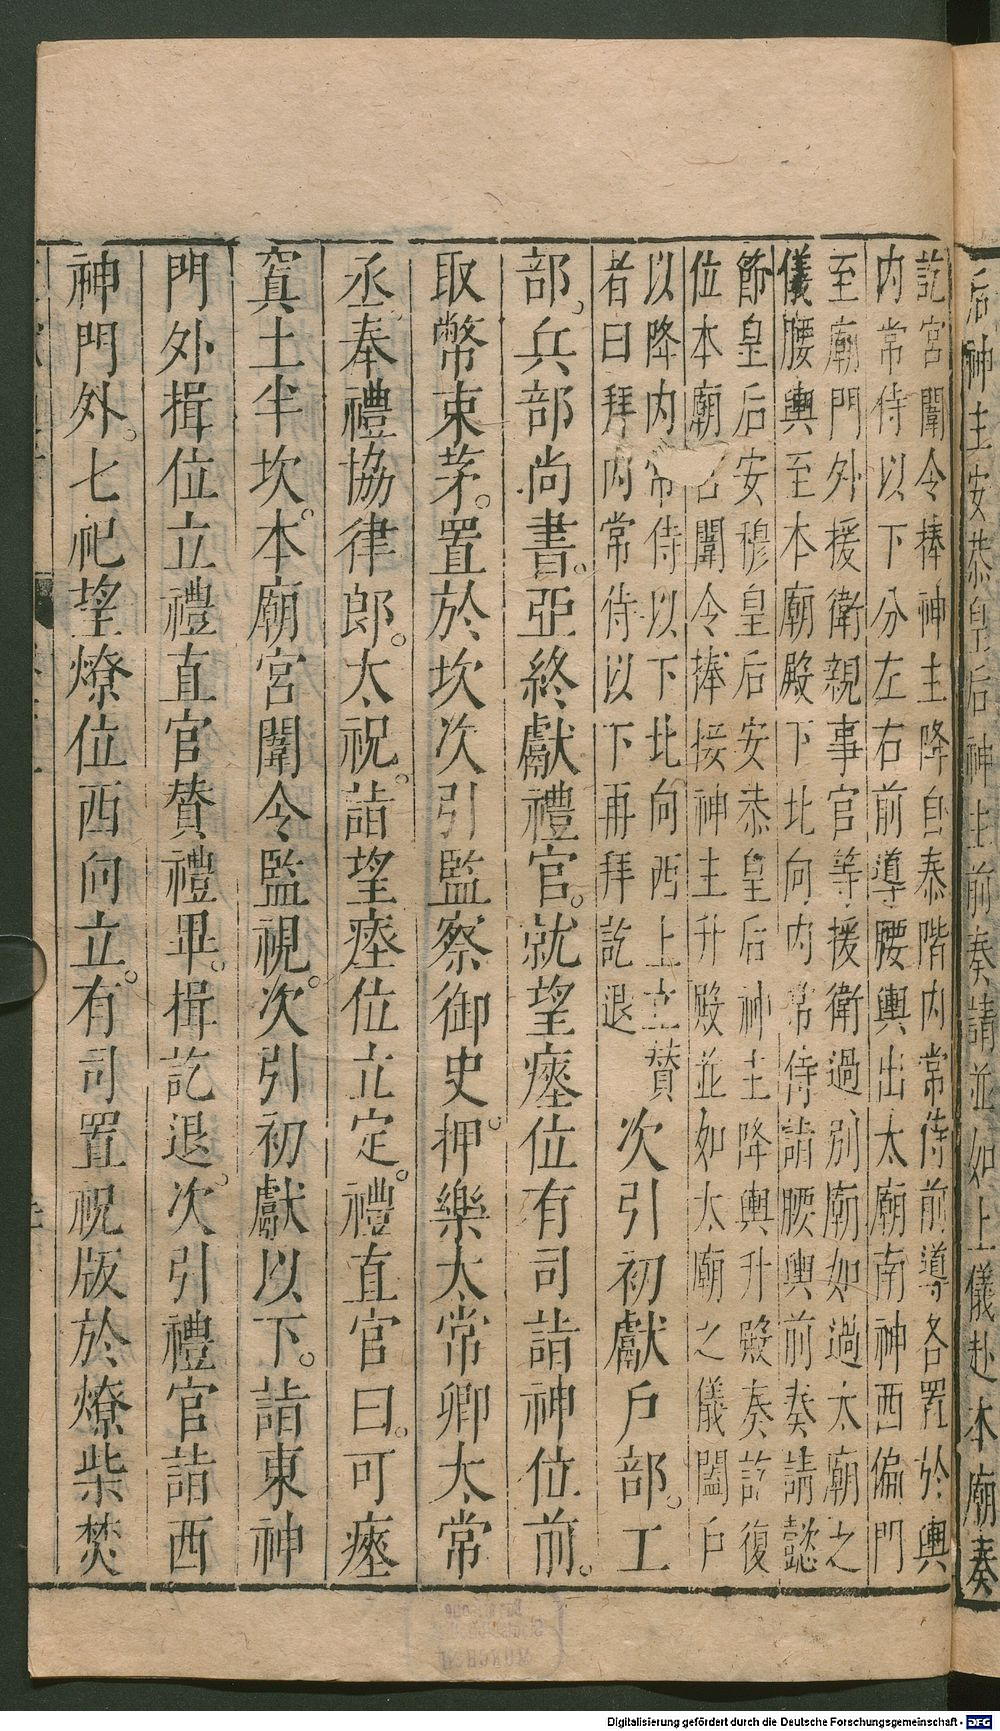 后神主安恭皇后神主前奏請並如上儀赴本廟奏
訖宮闈令捧神主降自泰階内常侍前導各置於輿
内常侍以下分左右前導腰輿出太廟南神西偏門
至廟門外援衛親事官等援衛過别廟如過太廟之
儀腰輿至本廟殿下北向内常侍請腰輿前奏請懿
節皇后安穆皇后安恭皇后神主降輿升殿奏訖復
位本廟宮闈令捧接神主升殿並如太廟之儀闔戶
以降内常侍以下北向西上立贊
者曰拜内常侍以下再拜訖退
次引初獻戶部。工
部。兵部尚書。亞終獻禮官。就望瘞位有司詣神位前。
取幣束茅。置於坎次引監察御史。押樂太常卿太常
丞。奉禮協律郎。太祝。詣望瘞位立定。禮直官曰。可瘞
寘土半坎。本廟宮闈令監視。次引初獻以下。詣東神
門外揖位立禮直官贊禮畢。揖訖退。次引禮官詣西
神門外。七祀望燎位西向立。有司置祝版於燎柴焚
Digitalisierung gefördert durch die Deutsche Forschungsgemeinschaft - DFG